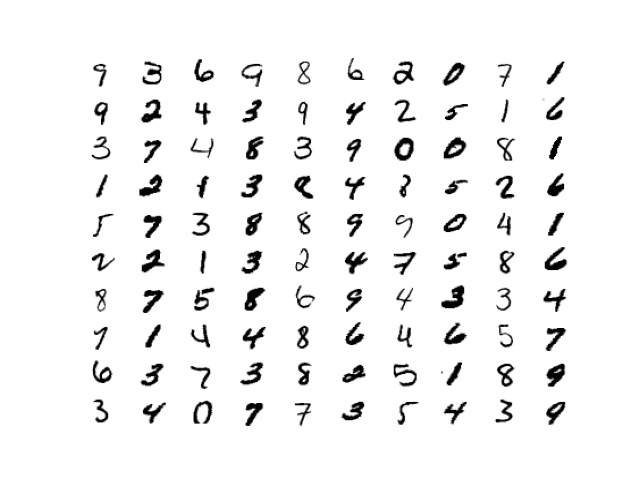 9 3 6 9 8 6 2 0 7 1
9 2 4 3 9 4 2 5 1 6
3 7 4 8 3 9 0 0 8 1
1 2 1 3 8 4 8 5 2 6
5 7 3 8 8 9 9 0 4 1
2 2 1 3 2 4 7 5 8 6
8 7 5 8 6 9 4 3 3 4
7 1 4 4 8 6 4 6 5 7
6 3 7 3 8 2 5 1 8 9
3 4 0 7 7 3 5 4 3 9